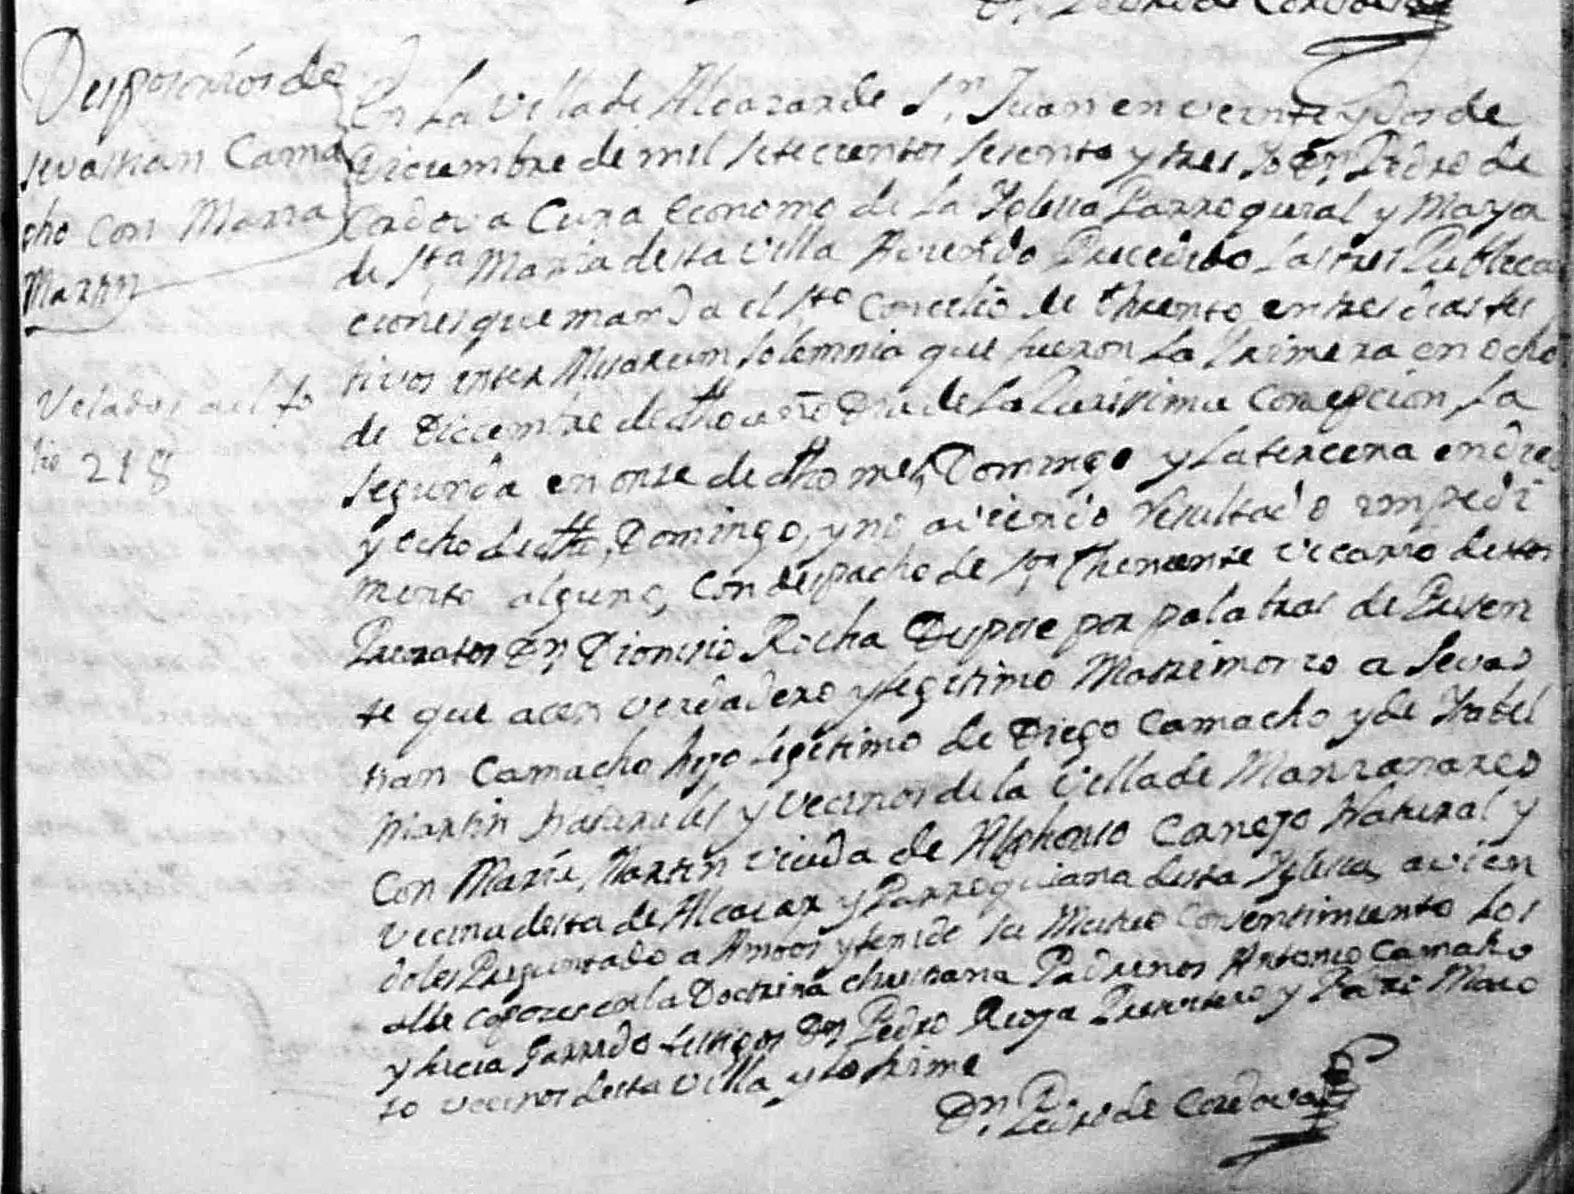 Dn. Pedro de Cordova
Desposorios de
Sevastian Cama
cho con Maria
Martin
Velados al fo
lio 218
En La Villa de Alcazar de Sn. Juan en veinte y dos de
Diciembre de mil setecientos sesenta y tres Yo Dn. Pedro de
Cordova Cura Economo de La Yglesia Parroquial y Mayor
de Sta. Maria desta Villa Aviendo Precedido Las tres Publica
ciones que manda el Sto. Concilio de thrento en tres dias fes
tivos inter Misarum solemnia que fueron La Primera en ocho
de Diciembre de dho año Dia de La Purissima Concepcion La
segunda en onse de dho mes, Domingo y La tercera en diez
y ocho de dho, Domingo, y no aviendo Resultado impedi
mento alguno, Con despacho de Sor. Theniente Vicario destos
Prioratos Dn. Dionisio Rocha Despose por palabras de Presen
te que acen verdadero y legitimo Matrimonio a Sevas
tian Camacho hijo Legitimo de Diego Camacho y de Ysabel
Martin Naturales y Vecinos de la Villa de Manzanares
Con Maria Martin viuda de Alphonso Cornejo Natural y
Vecina desta de Alcazar y Parroquiana desta Yglesia, avien
doles Preguntado a Ambos y tenido su Mutuo Consentimiento Los
alle capozes en la Doctrina christiana Padrinos Antonio Camacho
y Garrido testigos Dn Pedro Rioja Presvitero y
vecinos desta Villa y lo firme
Dn. Pedro de Cordova